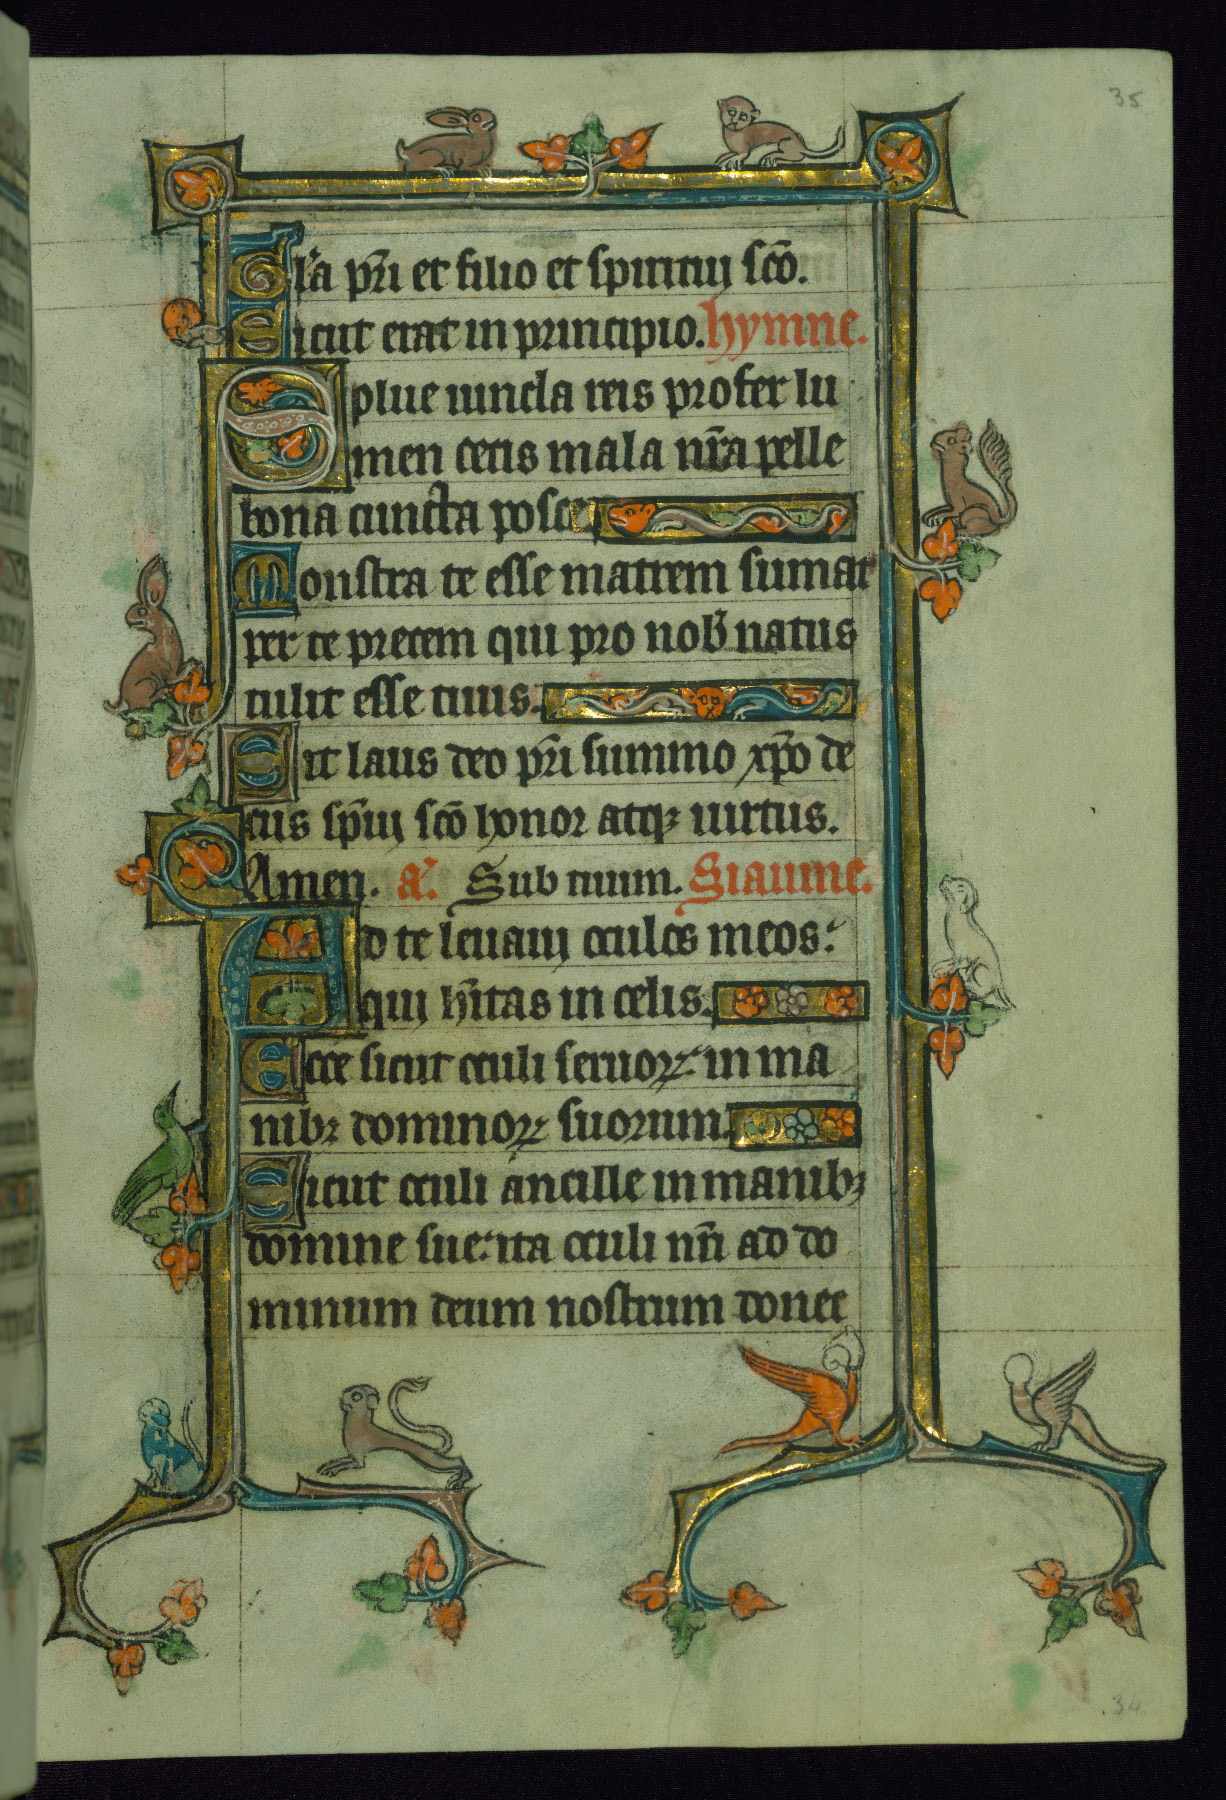 35
Gl'a p̄ri et filio et spirituj sc̄o.
Sicut erat in principio. hymne.
Solue uincla reis profer lu
men cecis mala nr̄a pelle
bona cuncta posce
Monstra te esse matrem sumat
per te precem qui pro nob̄ natus
tulit esse tuus.
Sit laus deo p̄ri summo xp̄o de
cus sp̄uj sc̄o honor atqꝫ uirtus.
Amen. a'. Sub tuum. Siaume.
Ad te leuauj oculos meos:
quj h̄itas in celis.
Ecce sicut oculi seruoꝝ: in ma
nibꝫ dominoꝝ suorum.
Sicut oculi ancille in manibꝫ
domine sue: ita oculi nr̄i ad do
minum deum nostrum donec
34